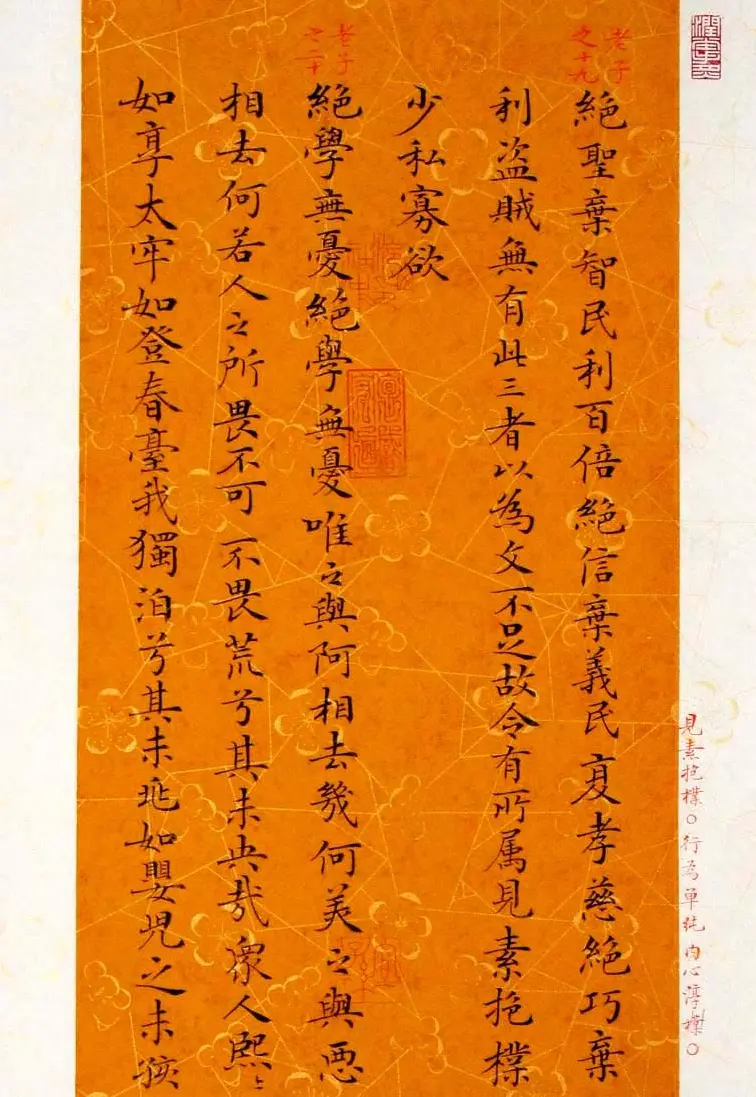 見素抱樸○行為單純内心淳樸○
老子
之十九
絕聖棄智民利百倍絕信棄義民复孝慈絕巧棄
利盜賊無有此三者以為文不足故令有所属見素抱樸
少私寡欲
老子
之二十
絕學無憂絕學無憂唯之與阿相去幾何美之與惡
相去何若人之所畏不可不畏荒兮其未央哉眾人熙〻
如享太牢如登春臺我獨泊兮其未兆如嬰兒之未孩